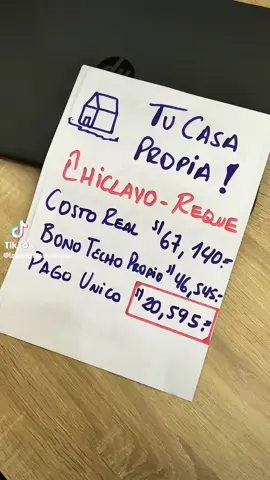 TU CASA
PROPIA!
CHICLAYO-REQUE
COSTO REAL S/67,140.-
BONO TECHO PROPIO S/46,545.-
PAGO UNICO S/20,595.-
TikTok